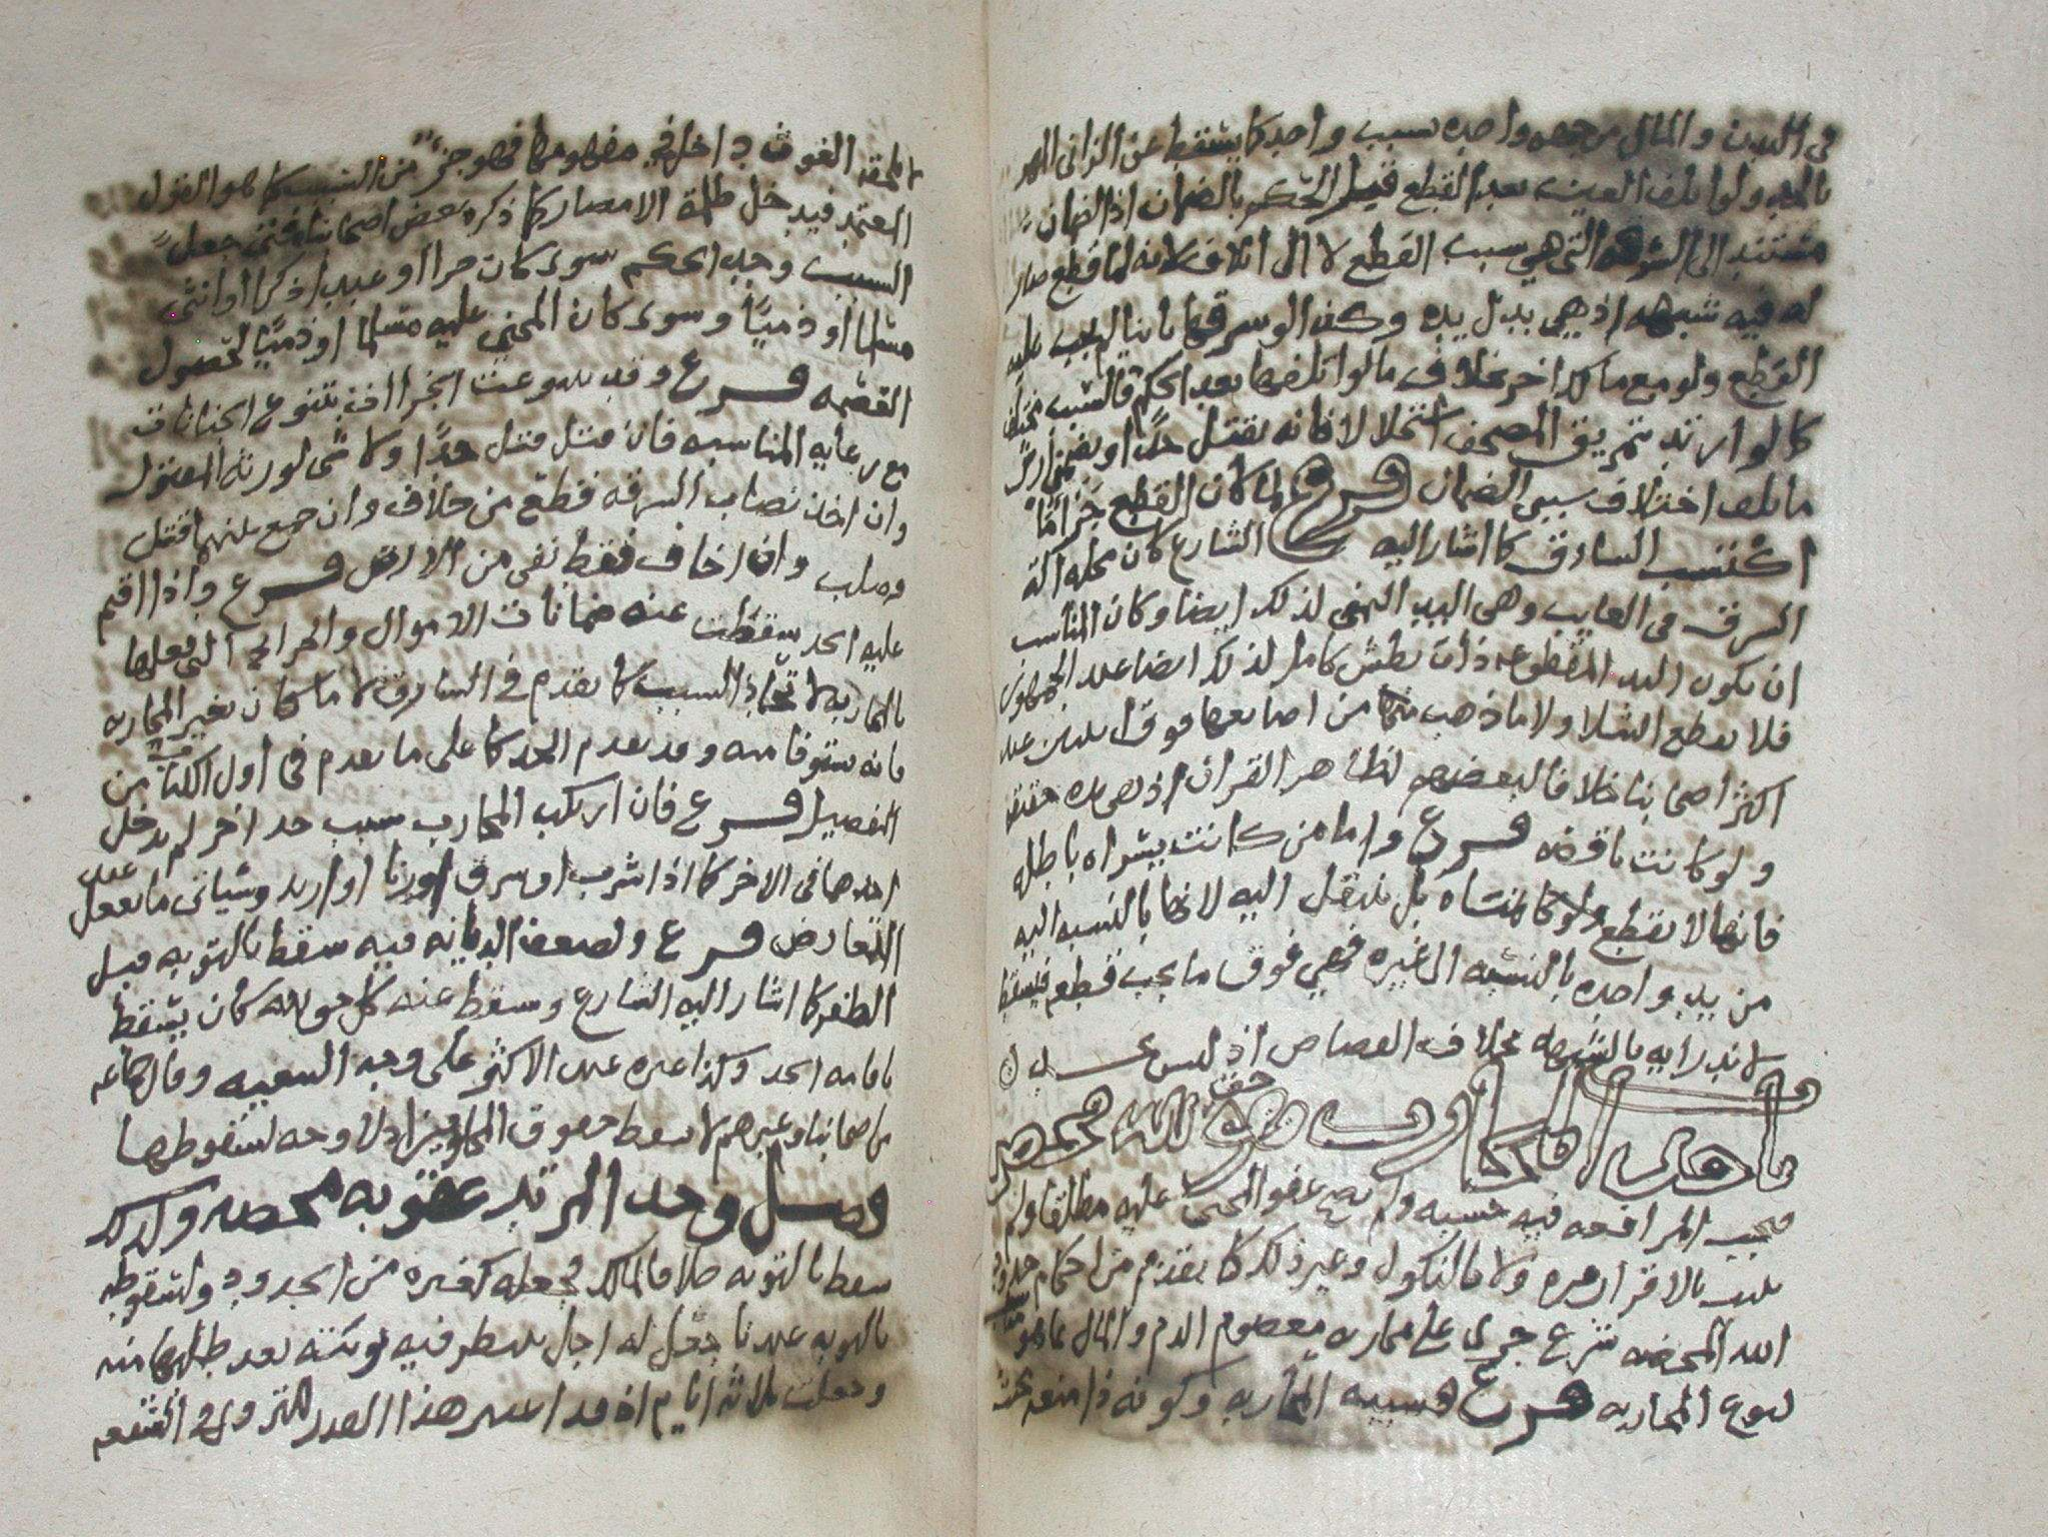 في البدن والمال من جهه واحده سبب واحد كما يسقط عن الزاني المهر
بالحد ولو اتلف العين بعد القطع قبل الحكم بالضمان اذ الضمان
مستند الى السرقه التي هي سبب القطع لا الى اتلاف لانه لما قطع صار
له فيه شبهه اذ هي بدل يده وكذا لو سرقها ثانيا لم يجب عليه
القطع ولو مع مالك اخر بخلاف ما لو اتلفها بعد الحكم فالسبب مختلف
كما لو ارتد بتمزيق المصحف استحلالا فانه يقتل حدا ويضمن ارش
ما تلف اختلاف سببي الضمان فرع لما كان القطع جزاء بما
اكتسب السارق كما اشار اليه الشارع كان محله الة
السرق في الغالب وهي اليد اليمنى لذلك ايضا وكان المناسب
ان يكون اليد المقطوعه ذات بطش كامل لذلك ايضا عند الجمهور
فلا يقطع الشلا ولا ما ذهب منها من اصابعها فوق اثنين عند
اكثر اصحابنا خلافا لبعضهم لظاهر القران اذ هي يده حقيقة
ولو كانت ناقصه فرع واما من كانت يسراه باطله
فانها لا يقطع ولو كالمنشاه بل ينتقل اليه لانها بالنسبه اليه
من يد واحده بالنسبه الى غيره فهي فوق ما يجب قطعه فيسقط
لاندرايه بالشبهه بخلاف القصاص اذ ليس بحد
وحد المحارب حق لله محض
فيجب المرافعه فيه حسبه ولم يصح عفو المجنى عليه مطلقا ولم
يثبت بالاقرار مره ولا بالنكول وغير ذلك كما تقدم من احكام حدود
الله المحضه شرع جزى على محاربه معصوم الدم والمال بما هو
لنوع المحاربه فرع فسببه المحاربه وكونه ذا منعه بحيث
الغوث داخل في مفهومها فهو جزء من السبب كما هو القول
المعتمد فيدخل ظلمة الامصار كما ذكره بعض اصحابنا فمتى حصل
السبب وجب الحكم سوى كان حرا او عبدا ذكرا او انثى
مسلما او ذميا وسوى كان المجني عليه مسلما او ذميا لحصول
القضيه فرع وقد تنوعت الجزاات بتنوع الجنايات
مع رعايه المناسبه فان قتل قتل حدا ولا شى لورثه المقتول
وان اخذ نصاب السرقه قطع من خلاف وان جمع بينهما قتل
وصلب وان اخاف فقط نفى من الارض فرع واذا اقيم
عليه الحد سقطت عنه ضمانات الاموال والجراح التى فعلها
بالمحاربه لاتحاذ السبب كما تقدم في السارق لا ما كان بغير المحاربه
فانه يستوفا منه وقد تقدم الحد كما على ما تقدم في اول الكتاب من
التفصيل فرع فان ارتكب المحارب سبب حد اخر لم يدخل
احدهما في الاخر كما اذا شرب او سرق او زنا او ارتد وسياتى ما يفعل عند
التعارض فرع ولضعف الديانه فيه سقط بالتوبه قبل
الظفر كما اشار اليه الشارع وسقط عنه كل حق لله كان يسقط
باقامه الحد وكذا غيره عند الاكثر على وجه التبعيه وقال جماعه
من اصحابنا وغيرهم لا يسقط حقوق المخلوقين اذ لا وجه لسقوطها
فصل وحد المرتد عقوبه محضه ولذلك
سقط بالتوبه خلافا لمالك فجعله كغيره من الحدود ولسقوطه
بالتوبه عندنا جعل له اجل ينتظر فيه توبته بعد طلبها منه
وجعلت ثلاثه ايام اذ قد اعتبر هذا القدر للتروي في الشفعه